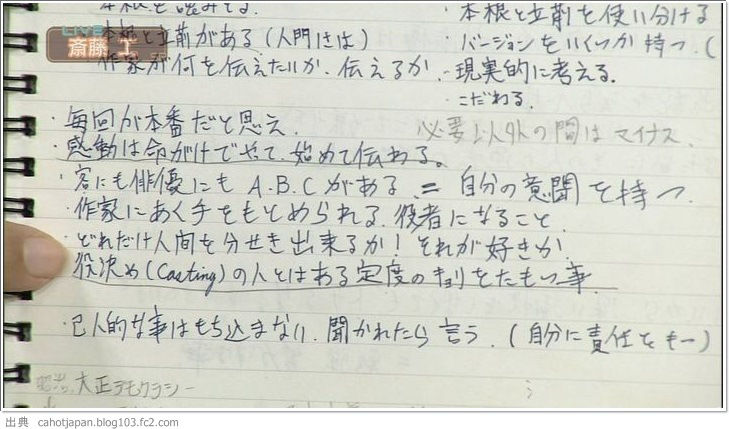 LIVE
斎藤 工
本根と立前がある(人門には)
作家が何を伝えたいか、伝えるか、
・本根と立前を使い分ける
・バージョンをいくつか持つ (
・現実的に考える
・こだわる
・毎回が本番だと思え、
必要以外の間はマイナス、
・感動は命がけでやって、始めて伝わる。
・客にも俳優にも A.B.C がある = 自分の意聞を持つ
・作家にあく手をもとめられる、役者になること、
・どれだけ人間を分せき出来るか! それが好きか、
役決め(Casting)の人とはある定度のキョリをたもつ事
・己人的な事はもち込まない、聞かれたら言う。(自分に責任をもつ)
大正デモクラシー
出典 cahotjapan.blog103.fc2.com